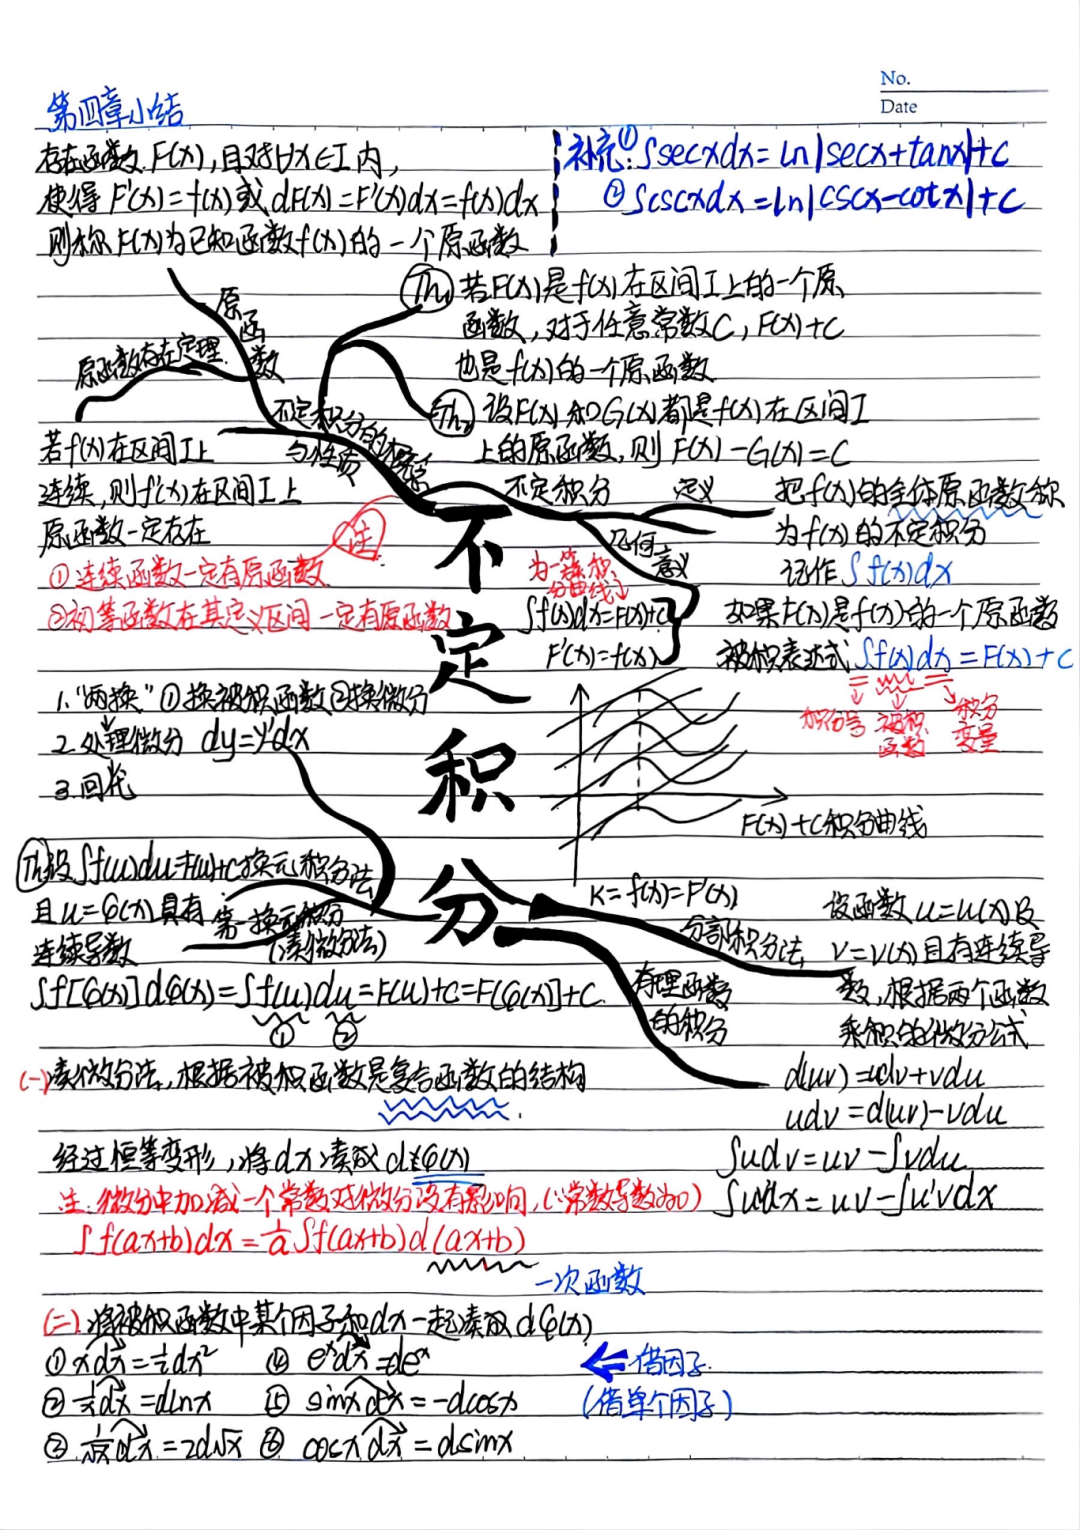 No.
Date
第四章小结
存在函数F(x),且对∀x∈I内,
使得F'(x)=f(x)或dF(x)=F'(x)dx=f(x)dx
则称F(x)为已知函数f(x)的一个原函数
补充:①∫secxdx=ln|secx+tanx|+C
②∫cscxdx=ln|cscx-cotx|+C
原函数
原函数存在定理
若f(x)在区间I上
连续,则f(x)在区间I上
原函数一定存在
注
①连续函数一定有原函数
②初等函数在其定义区间一定有原函数
不定积分的概念
与性质
Th₁ 若F(x)是f(x)在区间I上的一个原
函数,对于任意常数C,F(x)+C
也是f(x)的一个原函数
Th₂ 设F(x)和G(x)都是f(x)在区间I
上的原函数,则F(x)-G(x)=C
不定积分
定义
把f(x)的全体原函数称
为f(x)的不定积分
记作∫f(x)dx
如果F(x)是f(x)的一个原函数
被积表达式∫f(x)dx=F(x)+C
积分号
被积函数
积分变量
几何意义
为一簇积
分曲线
∫f(x)dx=F(x)+C
F'(x)=f(x)
F(x)+C积分曲线
K=f(x)=F'(x)
不定积分
1."两换"①换被积函数②换微分
2.处理微分 dy=y'dx
3.回代
换元积分法
第一换元积分
(凑微分法)
Th 设∫f(u)du=F(u)+C
且u=φ(x)具有
连续导数
∫f[φ(x)]dφ(x)=∫f(u)du=F(u)+C=F[φ(x)]+C
① ②
分部积分法
设函数u=u(x)及
v=v(x)具有连续导
数,根据两个函数
乘积的微分公式
d(uv)=udv+vdu
udv=d(uv)-vdu
∫udv=uv-∫vdu
∫uv'dx=uv-∫u'vdx
有理函数
的积分
(一)凑微分法,根据被积函数是复合函数的结构
经过恒等变形,将dx凑成dφ(x)
注:微分中加减一个常数对微分没有影响,(∵常数导数为0)
∫f(ax+b)dx=1/a∫f(ax+b)d(ax+b)
一次函数
(二).将被积函数中某个因子和dx一起凑成dφ(x)
①xdx=½dx² ④eˣdx=deˣ
②1/x dx=dlnx ⑤sinxdx=-dcosx
③1/√x dx=2d√x ⑥cosxdx=dsinx
借因子
(借单个因子)